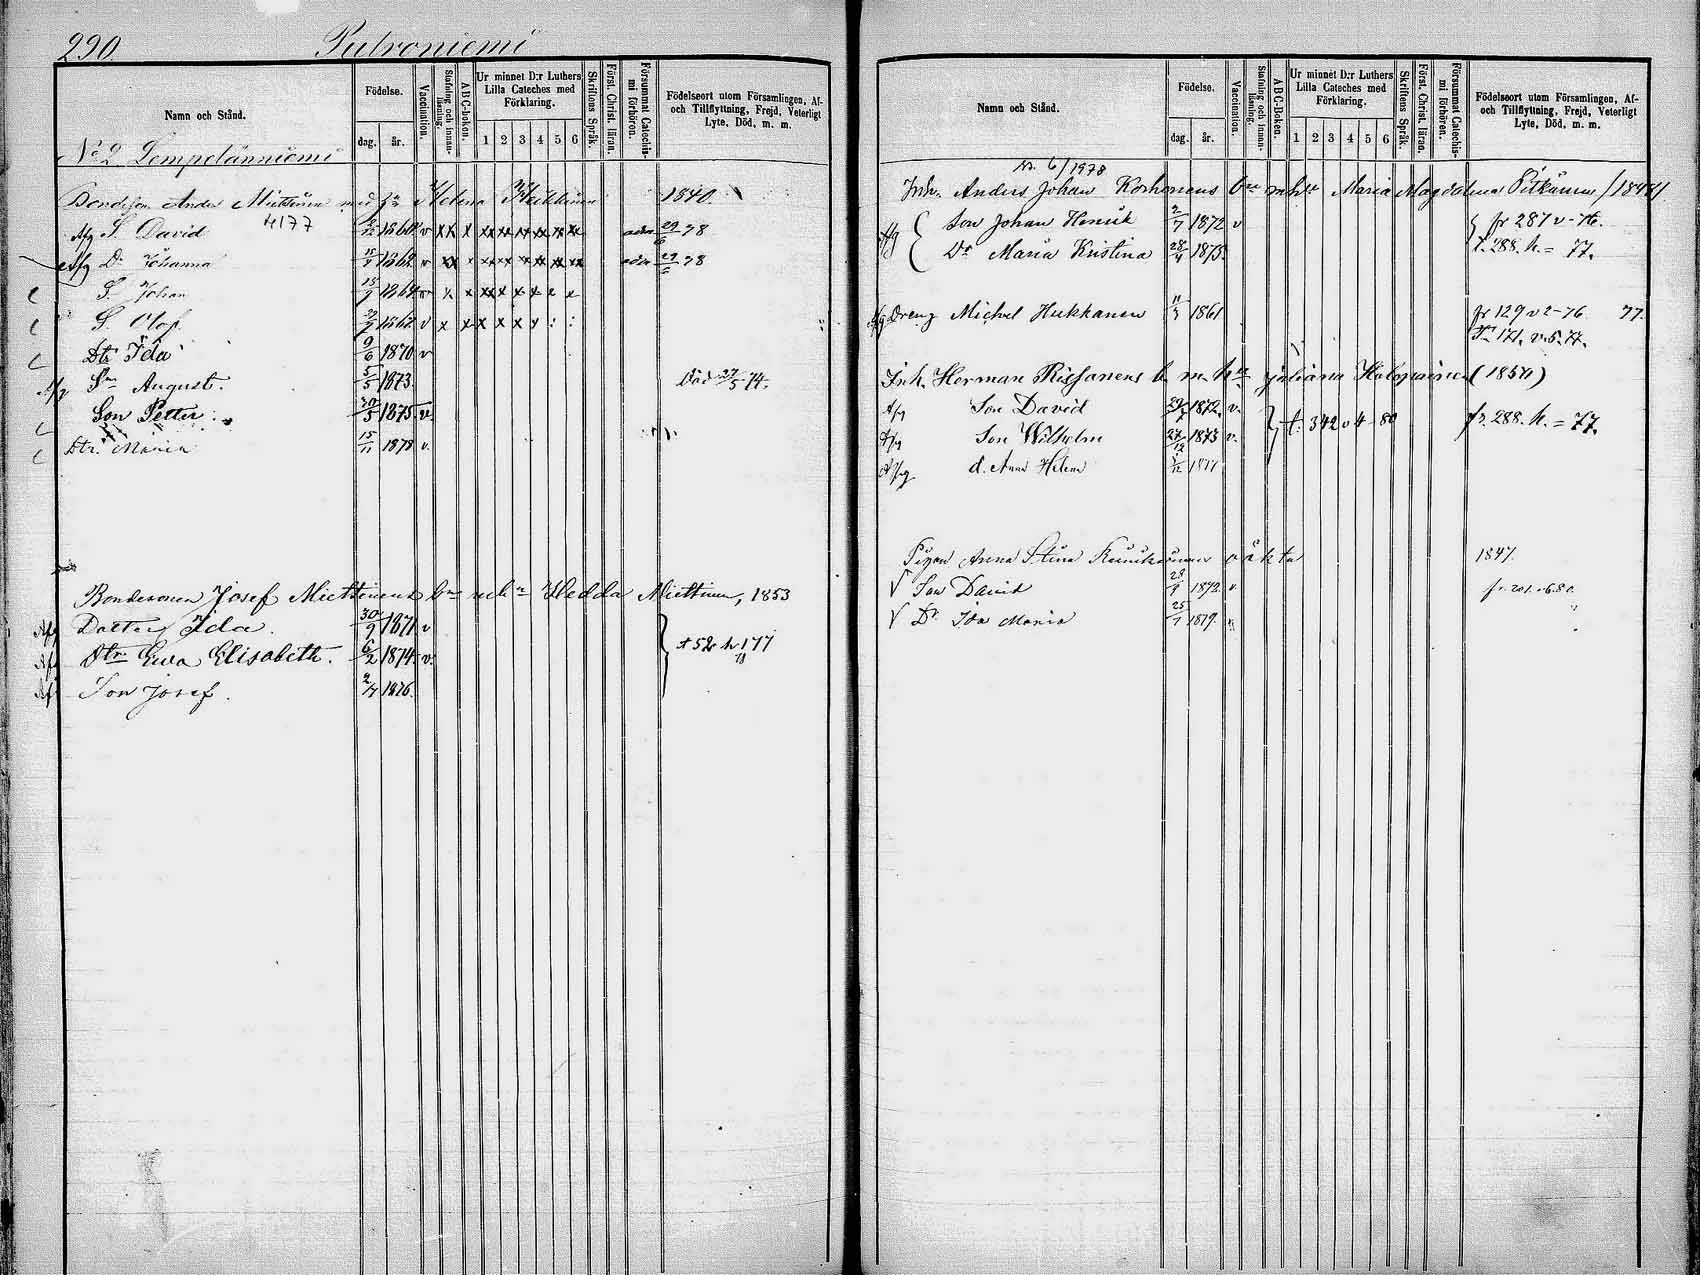 290. Putroniemi
Namn och Stånd.
Födelse.
dag. år.
Vaccination.
Stafning och innan-läsning.
A B C-boken.
Ur minnet D:r Luthers Lilla Cateches med Förklaring.
1 2 3 4 5 6
Skriftens Språk.
Först. Christ. läran.
Försummat Catechis-mi förhören.
Födelseort utom Församlingen, Af- och Tillflyttning, Frejd, Veterligt Lyte, Död, m. m.
No 2 Lempelänniemi
Anders Miettinen Helena Heikkinen 1840
4177
Afg S. David v xx x xx xx xx xx xx xx 29/6 78
Afg Dr Johanna 1862 v xx x x xx xx xx xx xx 29/6 78
S. Johan 15/9 1864 v x x xx x x x
S. Olof 1867 v x x x x x
Dtr Ida 9/6 1870 v
Afg Sn August. 5/5 1873. Död 27/5 74.
Son Petter 30/5 1875. v.
Dtr. Maria 15/11 1878 v.
Bondesonen Josef Miettinens bn m h n Hedda Miettinen, 1853
Afg Dotter Ida. 30/9 1871 v
Af Dtr Ewa Elisabeth. 6/2 1874. v.
Af Son Josef. 2/4 1876.
t 52 h 177
Namn och Stånd.
Födelse.
dag. år.
Vaccination.
Stafning och innan-läsning.
A B C-boken.
Ur minnet D:r Luthers Lilla Cateches med Förklaring.
1 2 3 4 5 6
Skriftens Språk.
Först. Christ. läran.
Försummat Catechis-mi förhören.
Födelseort utom Församlingen, Af- och Tillflyttning, Frejd, Veterligt Lyte, Död, m. m.
6/1978
Inh. Anders Johan Korhonens bn m hn Maria Magdalena Pitkänen
Afg Son Johan Henrik 2/7 1872 v fr 287 v - 76.
Dr Maria Kristina 28/4 1875. t. 288. h. = 77.
Afg Dreng Michel Hukkanen 1861 fr 129 v 2-76 77.
171. v. 5. 77.
Inh. Herman Rissanens b. m. hn Juliana Holopainen (1854)
Afg Son David 1872. v. t. 342 v 4 - 80 fr. 288. h. = 77.
Afg Son Wilhelm 27/12 1873 v.
Afg d. Anna Helena 1877
Pigan Anna Stina oäkta 1847.
V Son David 28/9 1872. v
V Dr Ida Maria 25/1 1879.